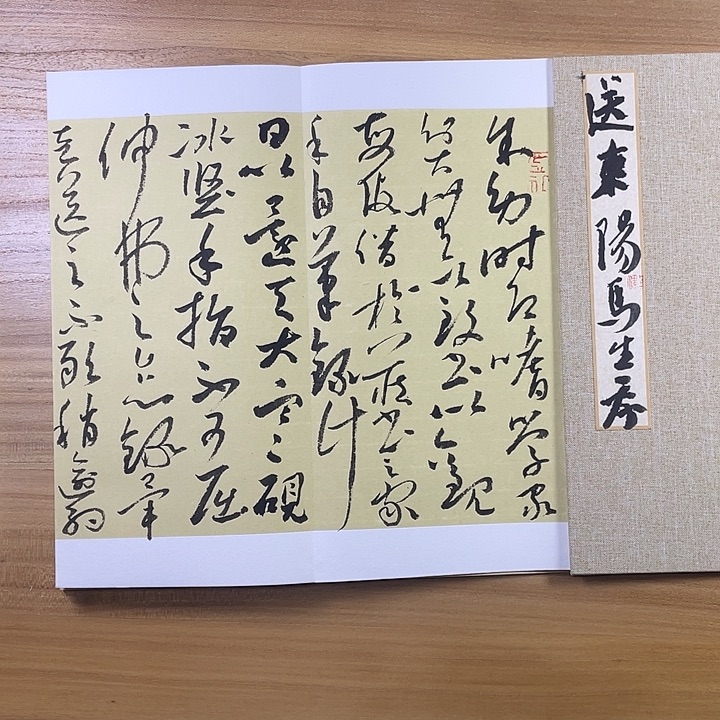 送東陽馬生序
余幼時即嗜學家
貧無從致書以觀
每假借於藏書之家
手自筆錄計
日以還天大寒硯
冰堅手指不可屈
伸弗之怠錄畢
走送之不敢稍逾約